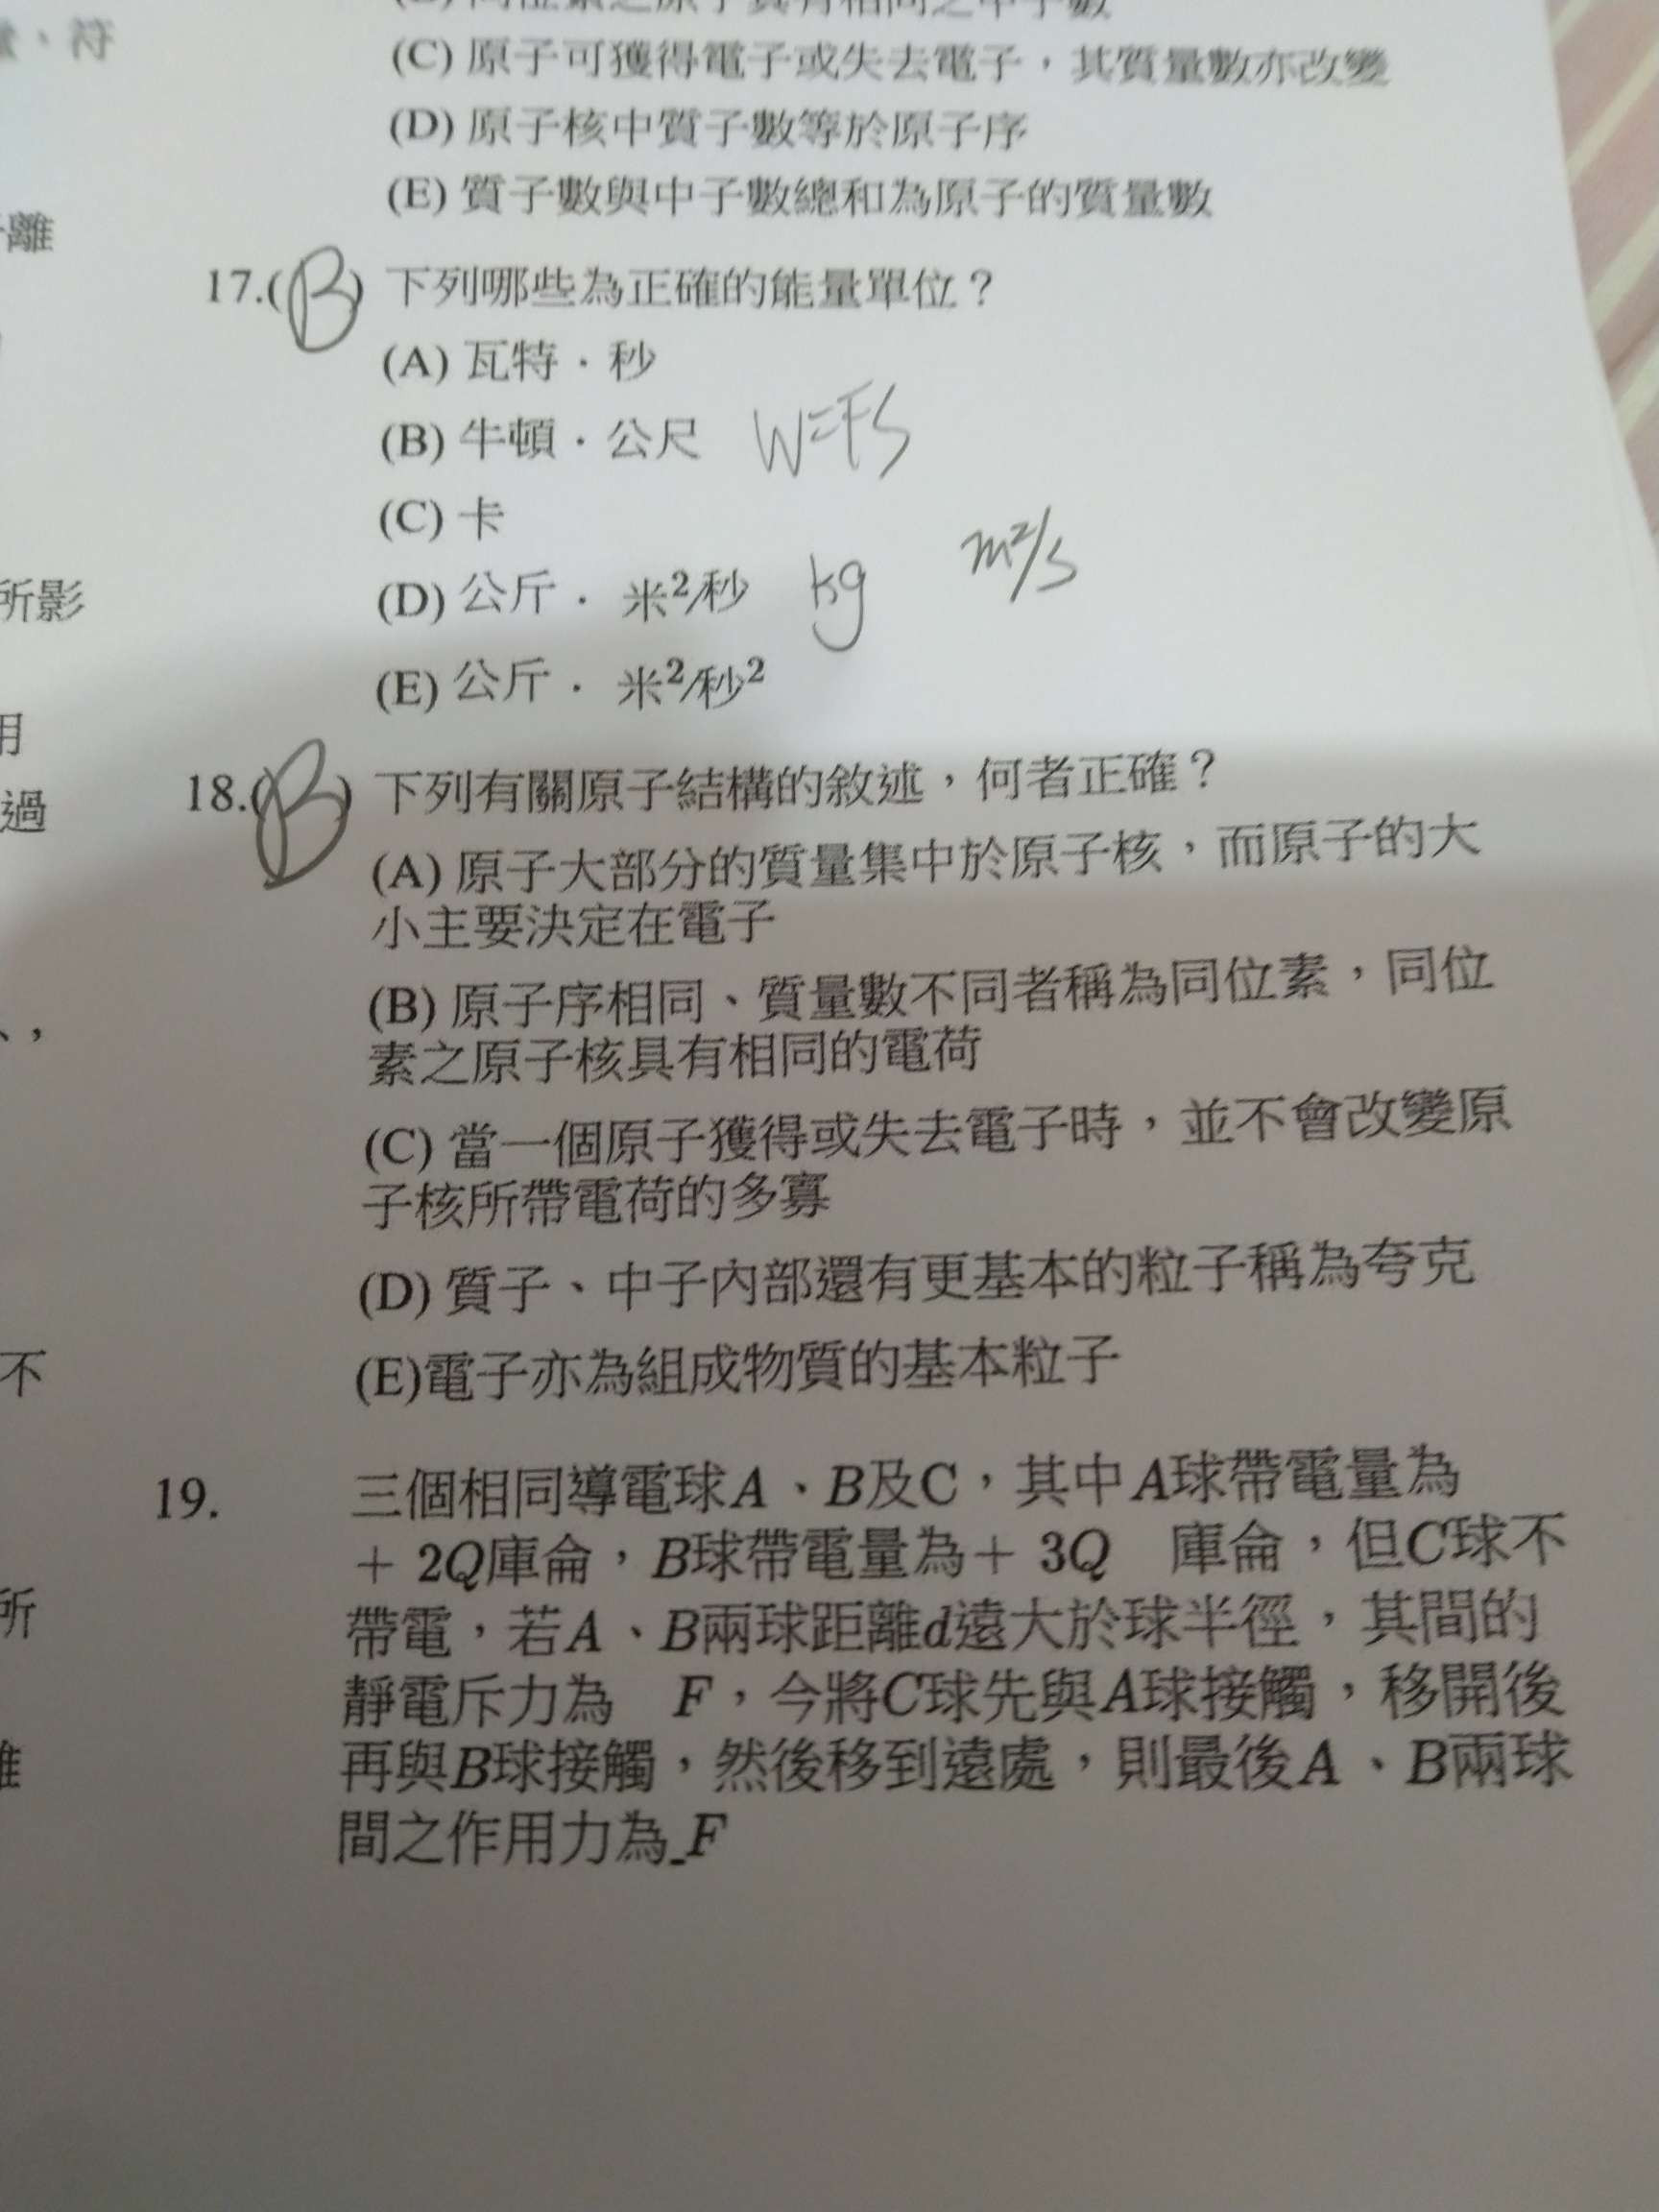 量，符
(C) 原子可獲得電子或失去電子，其質量數亦改變
(D) 原子核中質子數等於原子序
(E) 質子數與中子數總和為原子的質量數
離
17.(B) 下列哪些為正確的能量單位？
(A) 瓦特．秒
(B) 牛頓．公尺 W=FS
(C) 卡
(D) 公斤． 米²/秒 kg m²/s
所影
(E) 公斤． 米²/秒²
用
18.(B) 下列有關原子結構的敘述，何者正確？
過
(A) 原子大部分的質量集中於原子核，而原子的大
小主要決定在電子
(B) 原子序相同、質量數不同者稱為同位素，同位
素之原子核具有相同的電荷
(C) 當一個原子獲得或失去電子時，並不會改變原
子核所帶電荷的多寡
(D) 質子、中子內部還有更基本的粒子稱為夸克
不
(E)電子亦為組成物質的基本粒子
19. 三個相同導電球A、B及C，其中A球帶電量為
+ 2Q庫侖，B球帶電量為+ 3Q 庫侖，但C球不
所
帶電，若A、B兩球距離d遠大於球半徑，其間的
靜電斥力為 F，今將C球先與A球接觸，移開後
再與B球接觸，然後移到遠處，則最後A、B兩球
間之作用力為_F